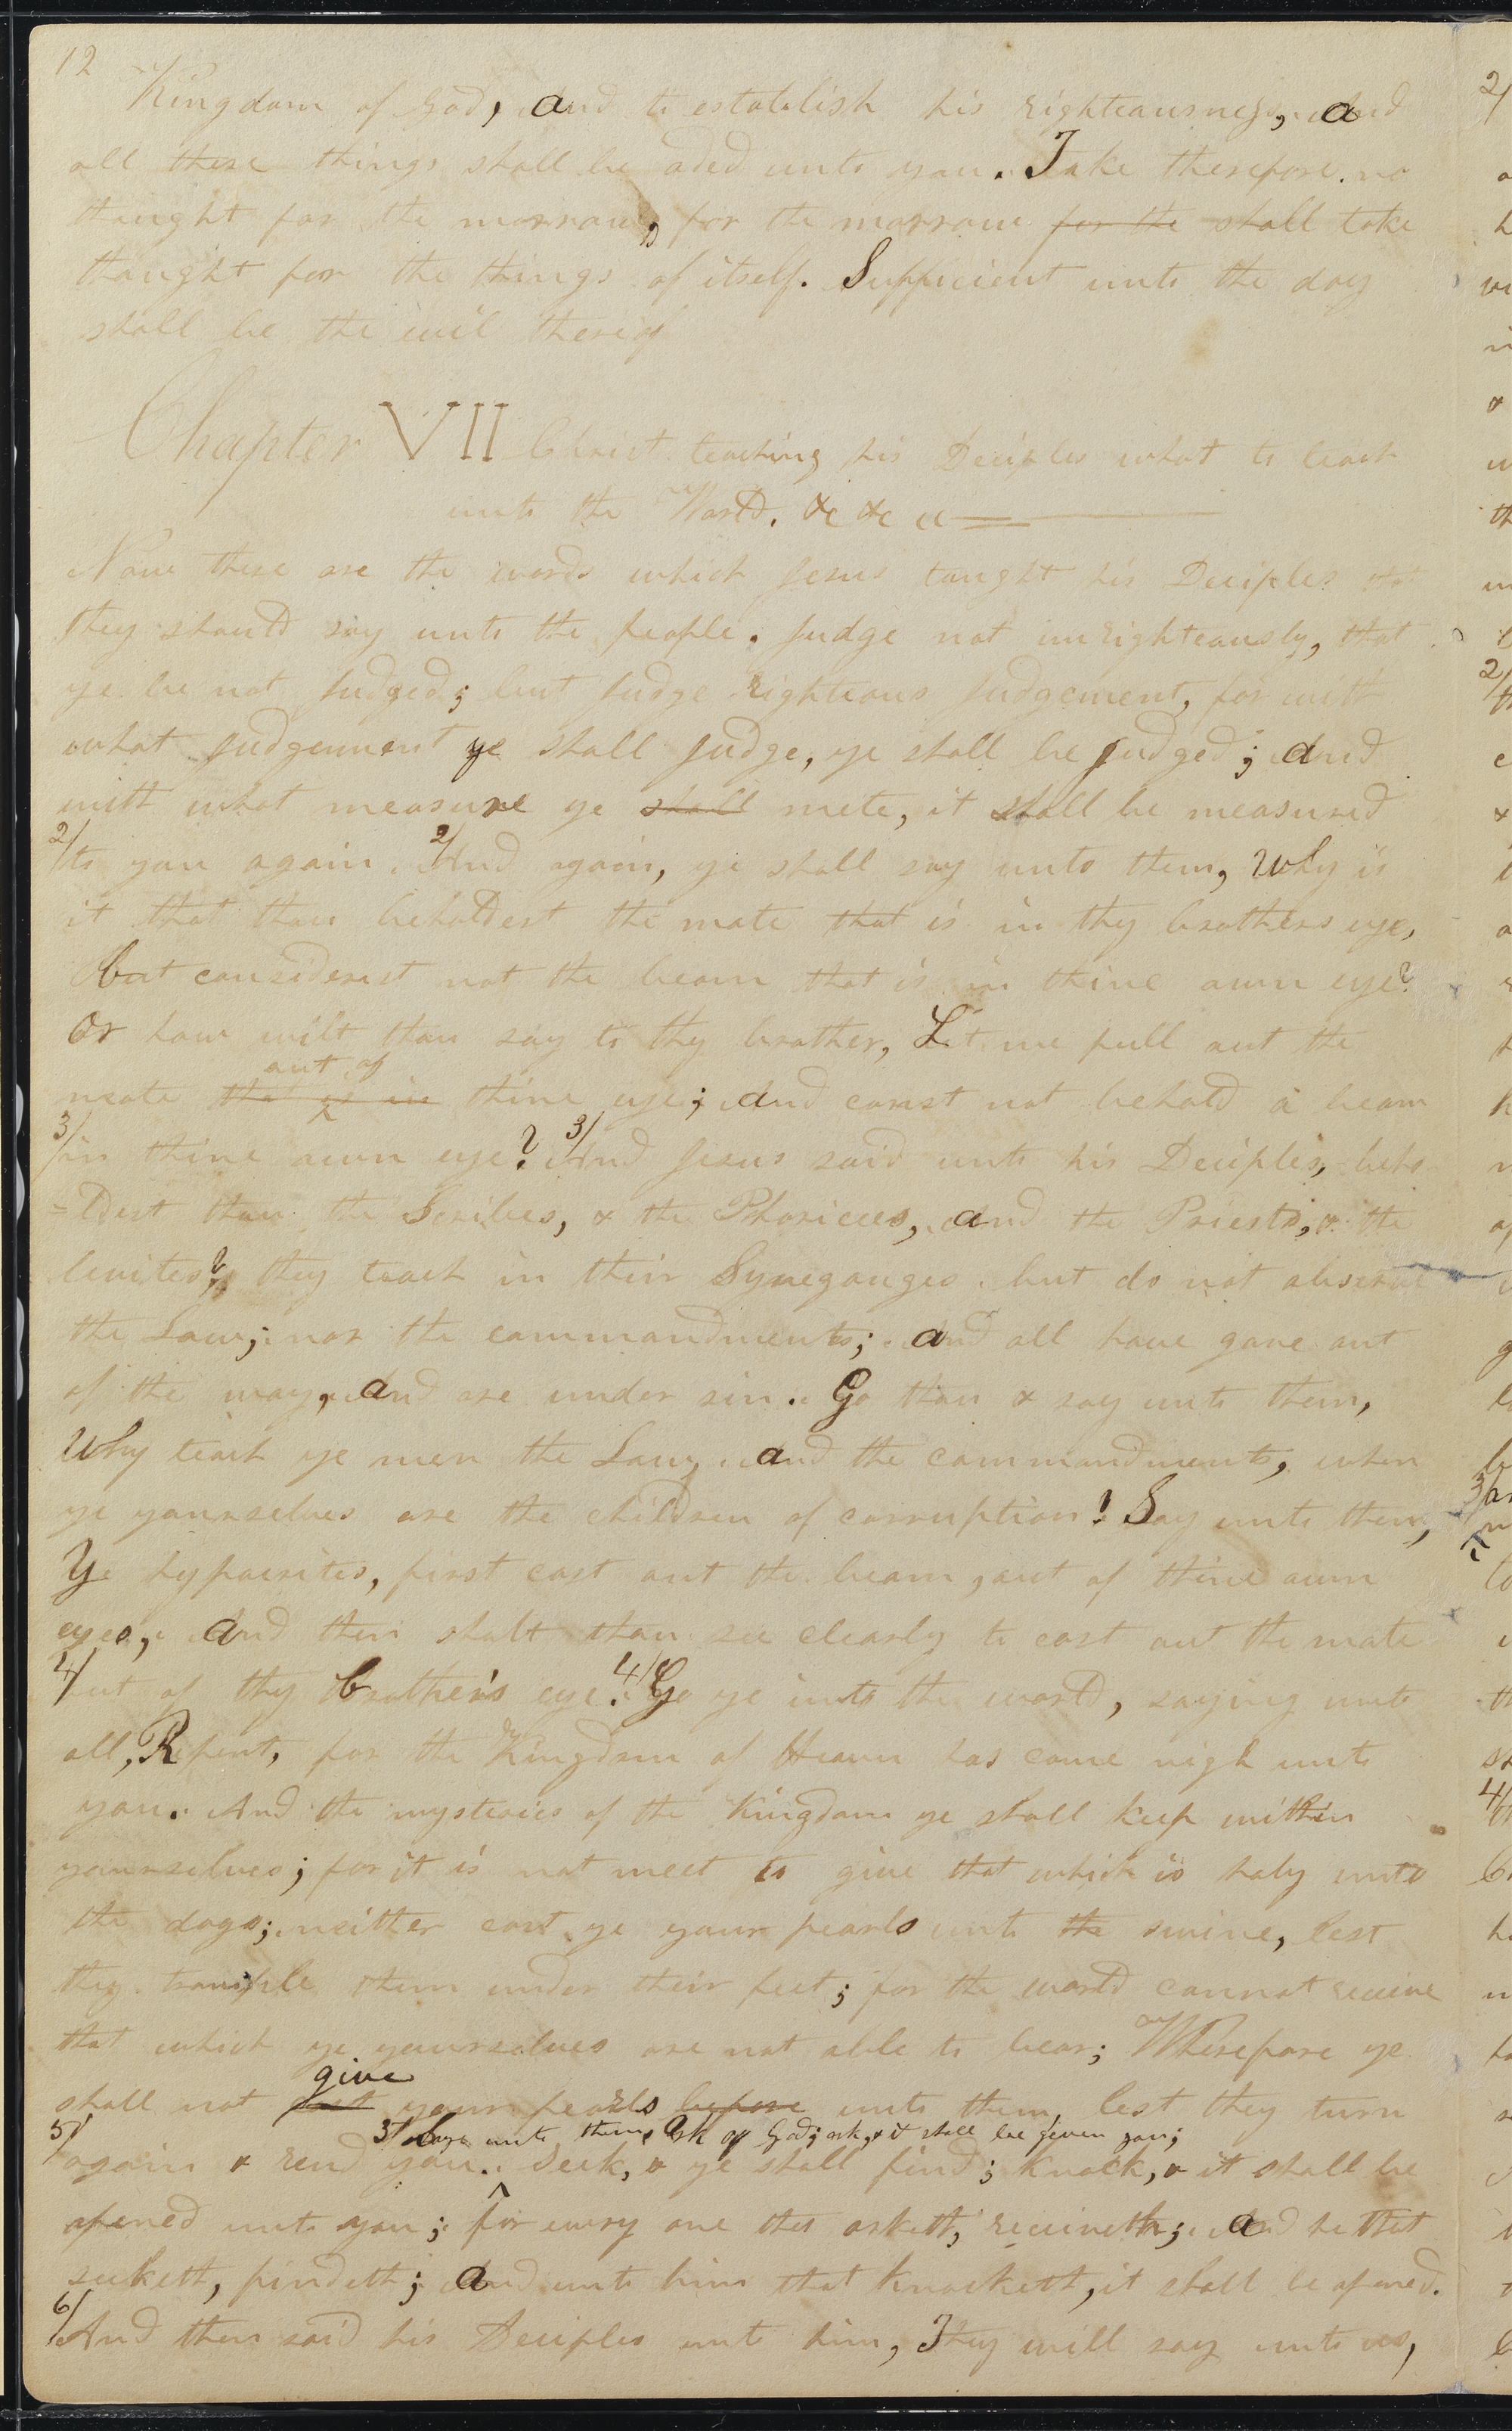 12
Kingdom of God, and to establish his righteousness, and
all these things shall be aded unto you. Take therefore no
thought for the morrow, for the morrow for the shall take
thought for the things of itself. Sufficient unto the day
shall be the evil thereof
Chapter VII Christ teaching his Deciples what to teach
unto the World. &c &c &c
Now these are the words which Jesus taught his Deciples that
they should say unto the people. Judge not unrighteously, that
ye be not Judged; but Judge righteous Judgement, for with
what Judgement ye shall Judge, ye shall be Judged; and
with what measure ye shall mete, it shall be measured
2/ to you again. 2/ And again, ye shall say unto them, Why is
it that thou beholdest the mote that is in thy brothers eye,
but considerest not the beam that is in thine own eye?
Or how wilt thou say to thy brother, Let me pull out the
out of
mote that is in thine eye; and canst not behold a beam
3/ in thine own eye? 3/ And Jesus said unto his Deciples, beho
=ldest thou the Scribes, & the Pharicees, and the Priests, & the
levites? they teach in their Synegauges but do not observe
the Law; nor the commandments; and all have gone out
of the way, and are under sin. Go thou & say unto them,
Why teach ye men the Law, and the commandments, when
ye yourselves are the children of corruption! Say unto them,
Ye hypocrites, first cast out the beam, out of thine own
eyes, and then shalt thou see clearly to cast out the mote
4/ out of thy brother's eye. 4/ Go ye into the world, saying unto
all, Repent, for the Kingdom of Heaven has come nigh unto
you. And the mysteries of the Kingdom ye shall keep within
yourselves; for it is not meet to give that which is holy unto
the dogs; neither cast ye your pearls unto the swine, lest
they trample them under their feet; for the world cannot receive
that which ye yourselves are not able to bear; Wherefore ye
give
shall not cast your pearls before unto them, lest they turn
5/ Say unto them, Ask of God; ask, & it shall be given you;
5/ again & rend you. Seek, & ye shall find; Knock, & it shall be
opened unto you; for every one that asketh, receiveth; and he that
seeketh, findeth; and unto him that Knocketh, it shall be opened.
6/ And then said his Deciples unto him, They will say unto us,